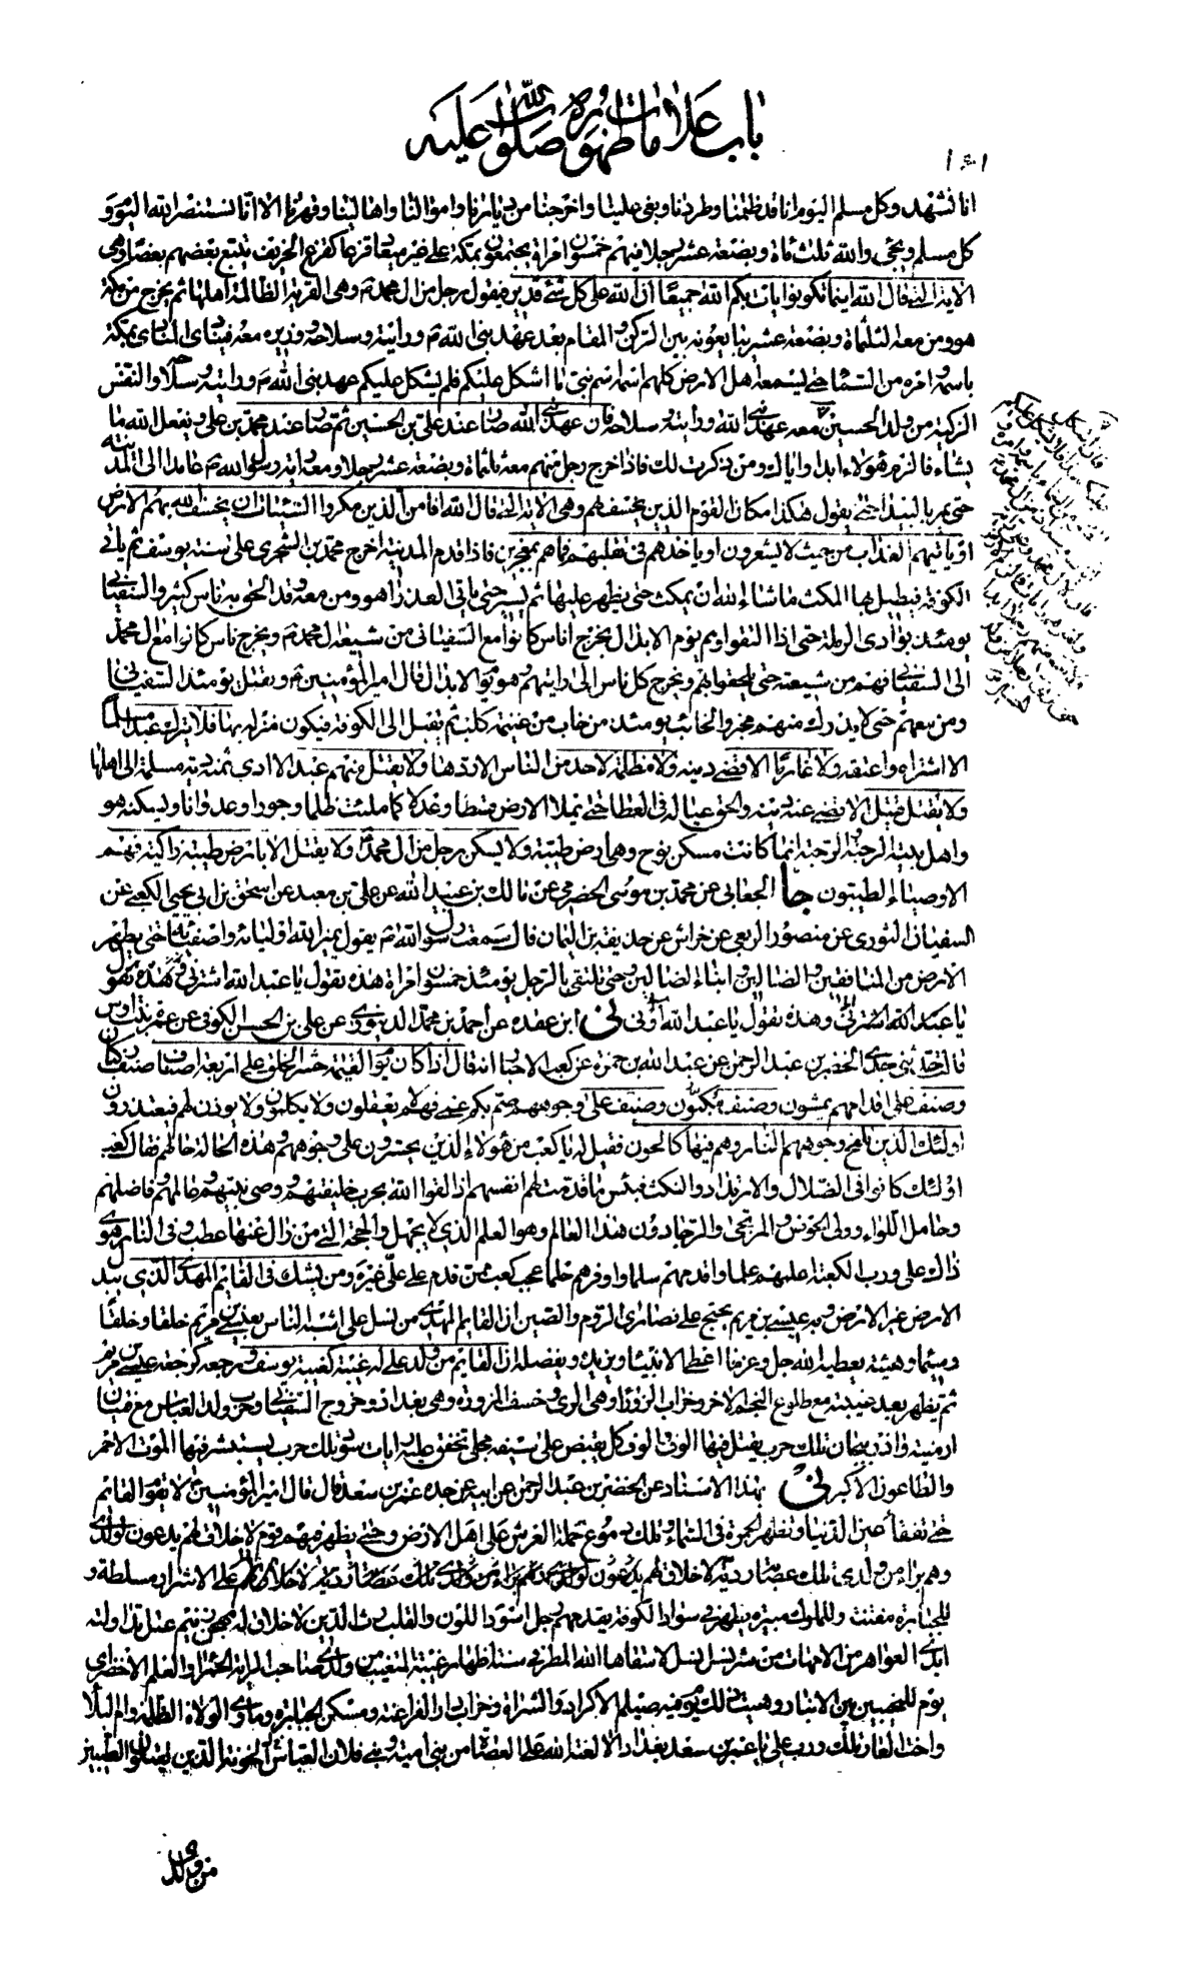 باب علامات ظهوره صلوات الله عليه
١٥١
انا نشهد وكل مسلم اليوم انا قد ظلمنا وطردنا وبغى علينا واخرجنا من ديارنا واموالنا واهالينا وقهرنا الا انا نستنصر الله اليوم و
كل مسلم ويجئ والله ثلث مأة وبضعة عشر رجلا فيهم خمسون امراة يجتمعون بمكة على غير ميعاد قزعا كقزع الخريف يتبع بعضهم بعضا وهى
الاية التى قال الله اينما تكونوا يات بكم الله جميعا ان الله على كل شئ قدير فيقول رجل من ال محمد ص وهى القرية الظالمة اهلها ثم يخرج من مكة
هو ومن معه الثلثمأة وبضعة عشر يبايعونه بين الركن والمقام بعد عهد نبى الله ص ورايته وسلاحه ووزيره معه فينادى المنادى بمكة
باسمه وامره من السماء حتى يسمعه اهل الارض كلهم اسمه اسم نبى ما اشكل عليكم فلم يشكل عليكم عهد نبى الله ص ورايته وسلاحه والنفس
الزكية من ولد الحسين معه عهد نبى الله ورايته وسلاحه فان عهد نبى الله صار عند على بن الحسين ثم صار عند محمد بن على ويفعل الله ما
يشاء فالزم هؤلاء ابدا واياك ومن ذكرت لك فاذا خرج رجل منهم معه ثلثمأة وبضعة عشر رجلا ومعه راية رسول الله ص عامدا الى المدينة
حتى يمر بالبيداء حتى يقول هكذا مكان القوم الذين يخسف بهم وهى الاية التى قال الله افامن الذين مكروا السيئات ان يخسف الله بهم الارض
او ياتيهم العذاب من حيث لا يشعرون او ياخذهم فى تقلبهم فما هم بمعجزين فاذا قدم المدينة اخرج محمد بن الشجرى على سنة يوسف ثم ياتى
الكوفة فيطيل بها المكث ما شاء الله ان يمكث حتى يظهر عليها ثم يسير حتى ياتى العذرا هو ومن معه وقد الحق به ناس كثير والسفيانى
يومئذ بوادى الرملة حتى اذا التقوا وهم يوم الابدال يخرج اناس كانوا مع السفيانى من شيعة ال محمد ص ويخرج ناس كانوا مع ال محمد
الى السفيانى فهم من شيعته حتى يلحقوا بهم ويخرج كل ناس الى رايتهم وهو يوم الابدال قال امير المؤمنين ع ويقتل يومئذ السفيانى
ومن معهم حتى لا يدرك منهم مخبر والخائب يومئذ من خاب من غنيمة كلب ثم يقبل الى الكوفة فيكون منزله بها فلا يترك عبدا مسلما
الا اشتراه واعتقه ولا غارما الا قضى دينه ولا مظلمة لاحد من الناس الا ردها ولا يقتل منهم عبد الا ادى ثمنه دية مسلمة الى اهلها
ولا يقتل قتيل الا قضى عنه دينه والحق عياله فى العطا حتى يملا الارض قسطا وعدلا كما ملئت ظلما وجورا وعدوانا ويسكنه هو
واهل بيته الرحبة والرحبة انما كانت مسكن نوح وهى ارض طيبة ولا يسكن رجل من ال محمد ولا يقتل الا بارض طيبة زاكية فهم
الاوصياء الطيبون جا الجعابى عن محمد بن موسى الحضرمى عن مالك بن عبيد الله عن على بن معبد عن اسحق بن ابى يحيى الكعبى عن
السفيان الثورى عن منصور الربعى عن خراش عن حذيفة بن اليمان قال سمعت رسول الله ص يقول يميز الله اوليائه واصفيائه حتى يطهر
الارض من المنافقين والضالين وابناء الضالين وحتى تلتقى بالرجل يومئذ خمسون امراة هذه تقول يا عبد الله اشترنى وهذه تقول
يا عبد الله اشترنى وهذه تقول يا عبد الله آونى نى ابن عقدة عن احمد بن محمد الدينورى عن على بن الحسن الكوفى عن عميرة بنت اوس
قالت حدثنى جدى الخضر بن عبد الرحمن عن عبد الله بن حمزة عن كعب الاحبار انه قال اذا كان يوم القيمة حشر الخلق على اربعة اصناف صنف ركبان
وصنف على اقدامهم يمشون وصنف مكبون وصنف على وجوههم صم بكم عمى فهم لا يعقلون ولا يكلمون ولا يؤذن لهم فيعتذرون
اولئك الذين تلفح وجوههم النار وهم فيها كالحون فقيل له يا كعب من هؤلاء الذين يحشرون على وجوههم وهذه الحالة حالهم فقال كعب
اولئك كانوا فى الضلال والارتداد والنكث فبئس ما قدمت لهم انفسهم اذا لقوا الله بحرب خليفتهم ووصى نبيهم وعالمهم وفاضلهم
وحامل اللواء وولى الحوض والمرتجى والرجا دون هذا العالم وهو العلم الذى لا يجهل والحجة التى من زال عنها عطب وفى النار هوى
ذاك على ورب الكعبة اعلمهم علما واقدمهم سلما واوفرهم حلما عجب كعب ممن قدم على على غيره ومن يشك فى القائم المهدى الذى يبدل
الارض غير الارض وبه عيسى بن مريم يحتج على نصارى الروم والصين ان القائم المهدى من نسل على اشبه الناس بعيسى بن مريم خلقا وخلقا
وسيما وهيئة يعطيه الله جل وعز ما اعطى الانبياء ويزيده ويفضله ان القائم من ولد على له غيبة كغيبة يوسف ورجعة كرجعة عيسى بن مريم
ثم يظهر بعد غيبته مع طلوع النجم الاخر وخراب الزوراء وهى الرى وخسف المزورة وهى بغداد وخروج السفيانى وحرب ولد العباس مع فتيان
ارمنية واذربيجان تلك حرب يقتل فيها الوف والوف كل يقبض على سيف محلى تخفق عليه رايات سود تلك حرب يستبشر فيها الموت الاحمر
والطاعون الاكبر نى بهذا الاسناد عن الخضر بن عبد الرحمن عن ابيه عن جده عمر بن سعد قال قال امير المؤمنين ع لا يقوم القائم
حتى تفقا عين الدنيا وتظهر الحمرة فى السماء وتلك دموع حملة العرش على اهل الارض وحتى يظهر فيهم قوم لا خلاق لهم يدعون لولدى
وهم براء من ولدى تلك عصابة ردية لا خلاق لهم على الاشرار مسلطة و
للجبابرة مفتنة وللملوك مبيرة يظهر فى سواد الكوفة يقدمهم رجل اسود اللون والقلب رث الدين لا خلاق له مهجن زنيم عتل تداولته
ايدى العواهر من الامهات من شر نسل لا سقاها الله المطر فى سنة اظهار غيبة المتغيب من ولدى صاحب الراية الحمراء والعلم الاخضر اى
يوم للمخيبين بين الانبار وهيت ذلك يوم فيه صيلم الاكراد والشراة وخراب دار الفراعنة ومسكن الجبابرة وماوى الولاة الظلمة وام البلاء
واخت العار تلك ورب على يا عمر بن سعد بغداد الا لعنة الله على العصاة من بنى امية وبنى فلان العباس الخونة الذين يقتلون الطيبين
من ولدى